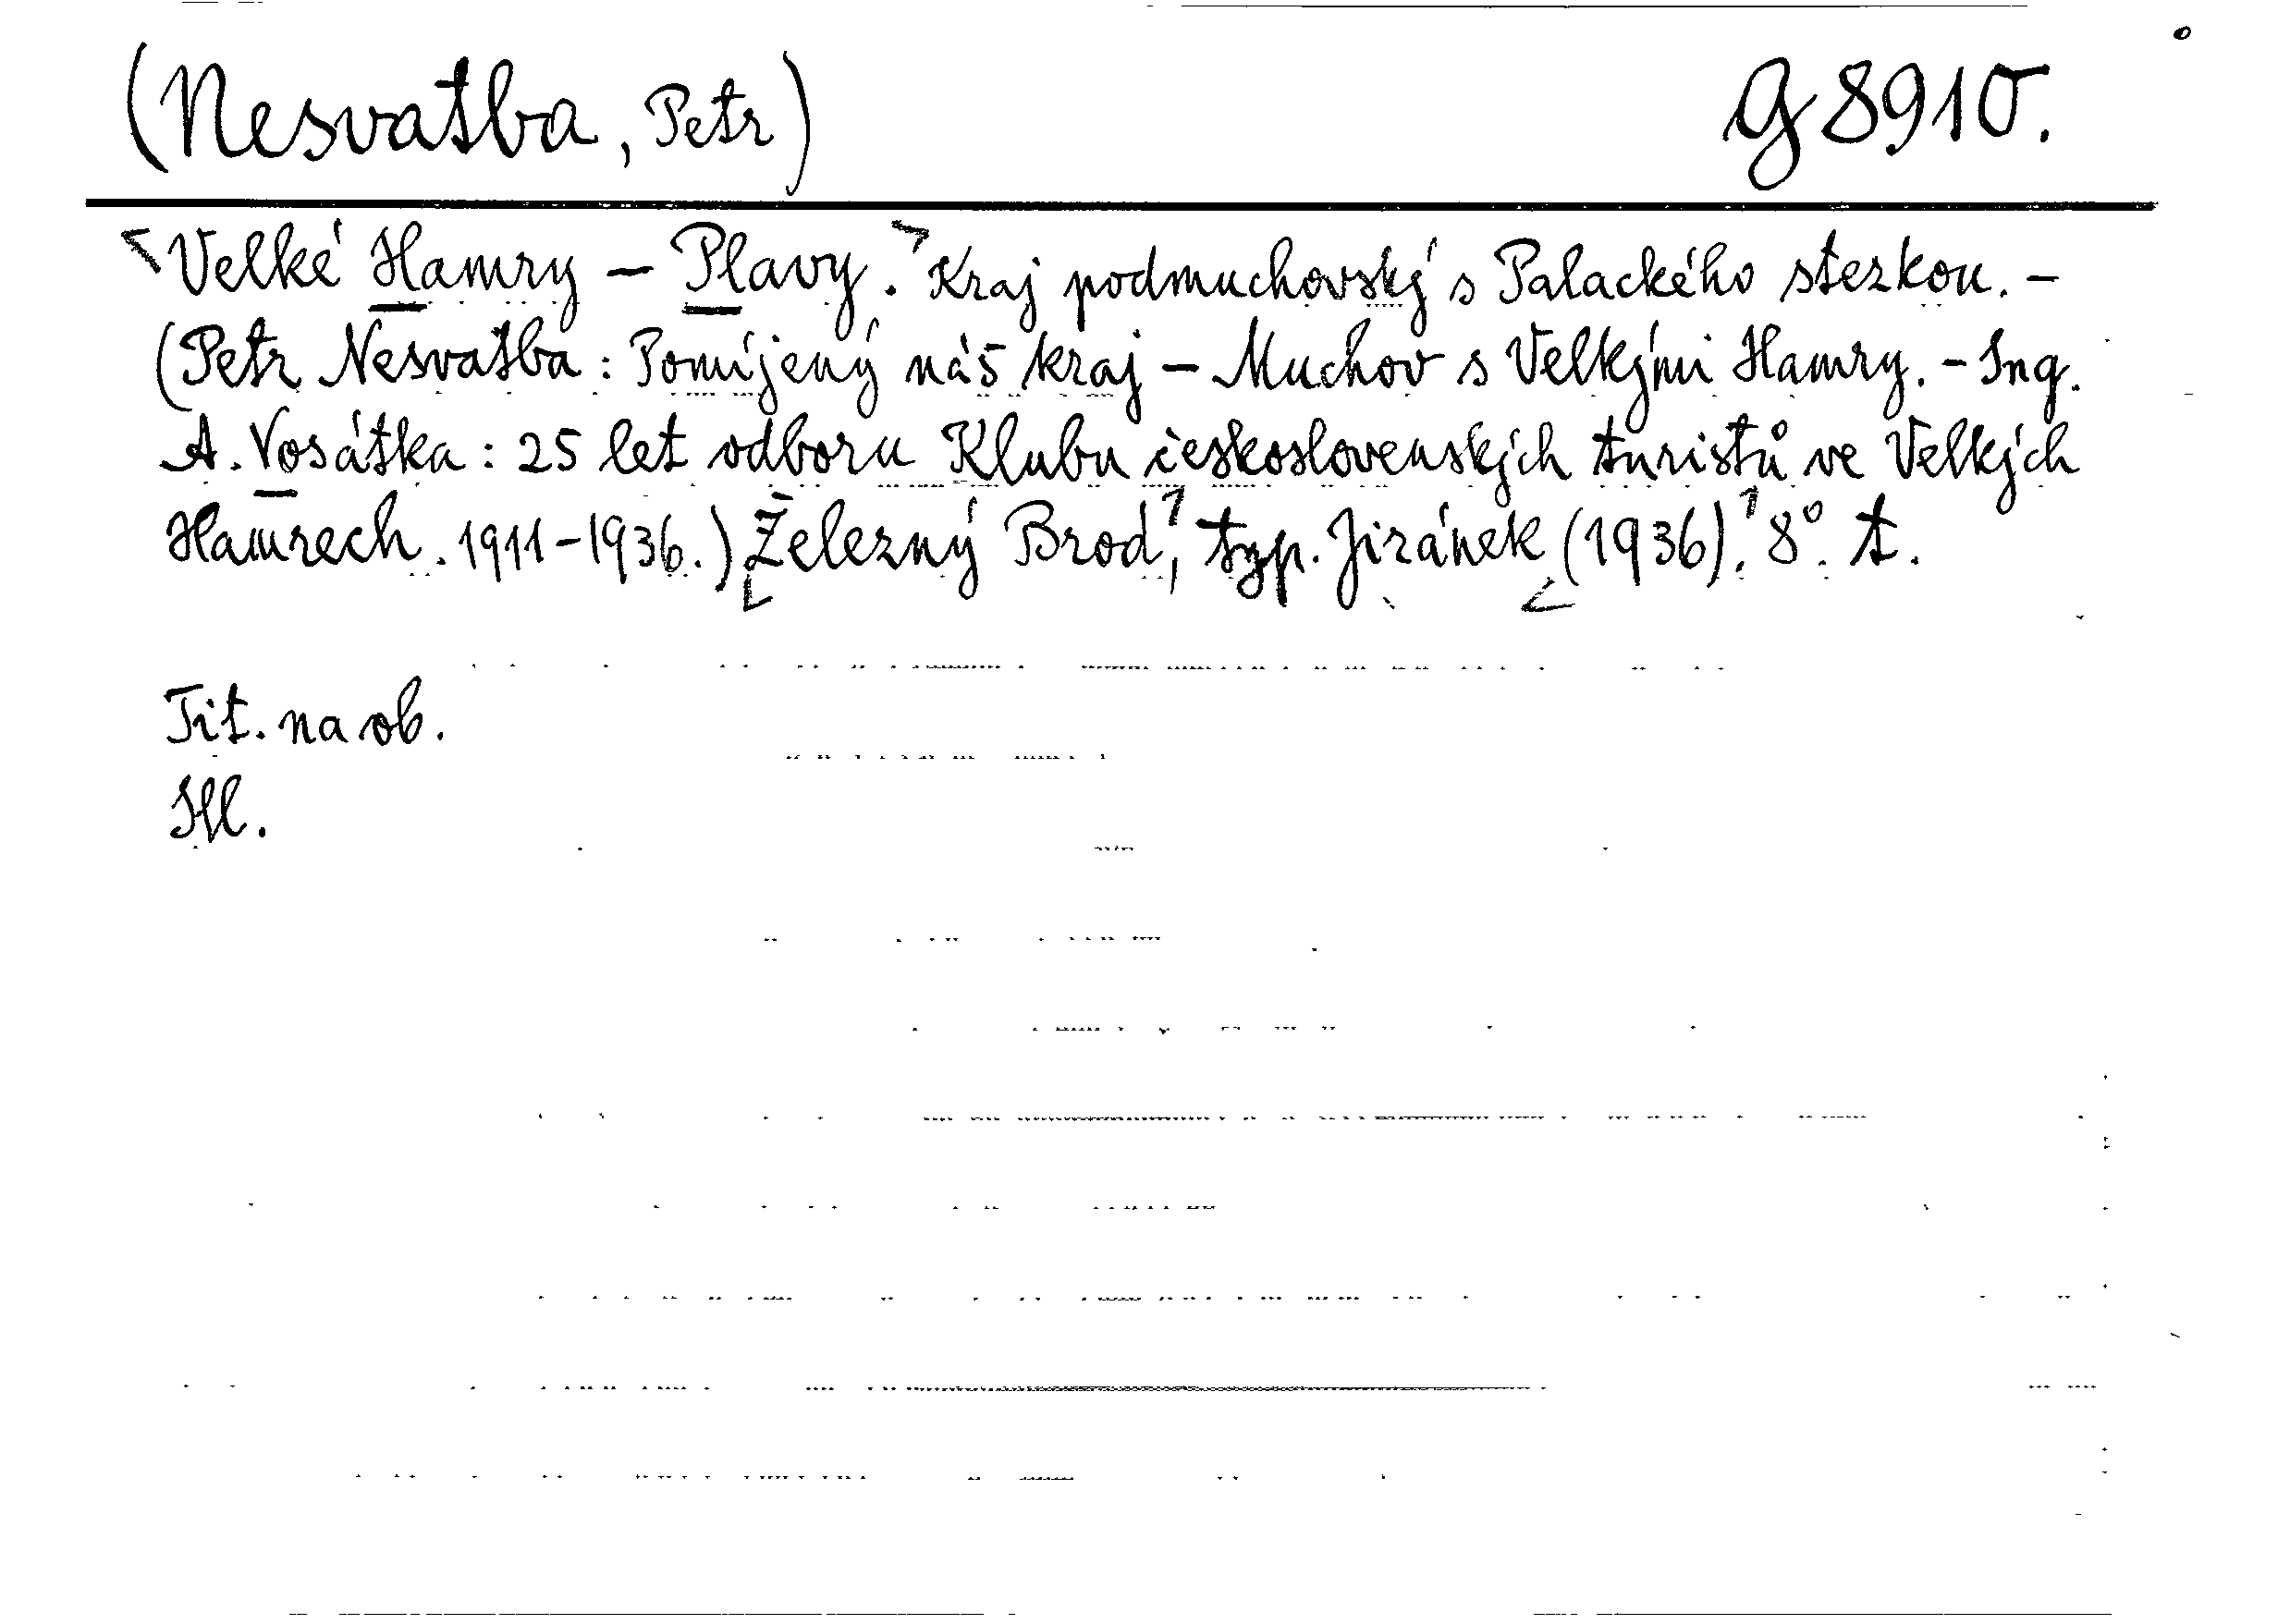 (Nesvatba, Petr) G 8910.
Velké Hamry – Plavy. Kraj podmuchovský s Palackého stezkou. –
(Petr Nesvatba: Pomíjený náš kraj – Muchov s Velkými Hamry. – Ing.
A. Vosátka: 25 let odboru Klubu československých turistů ve Velkých
Hamrech. 1911–1936.) Železný Brod, typ. Jiránek (1936). 8°. t.
Tit. na ob.
Hl.